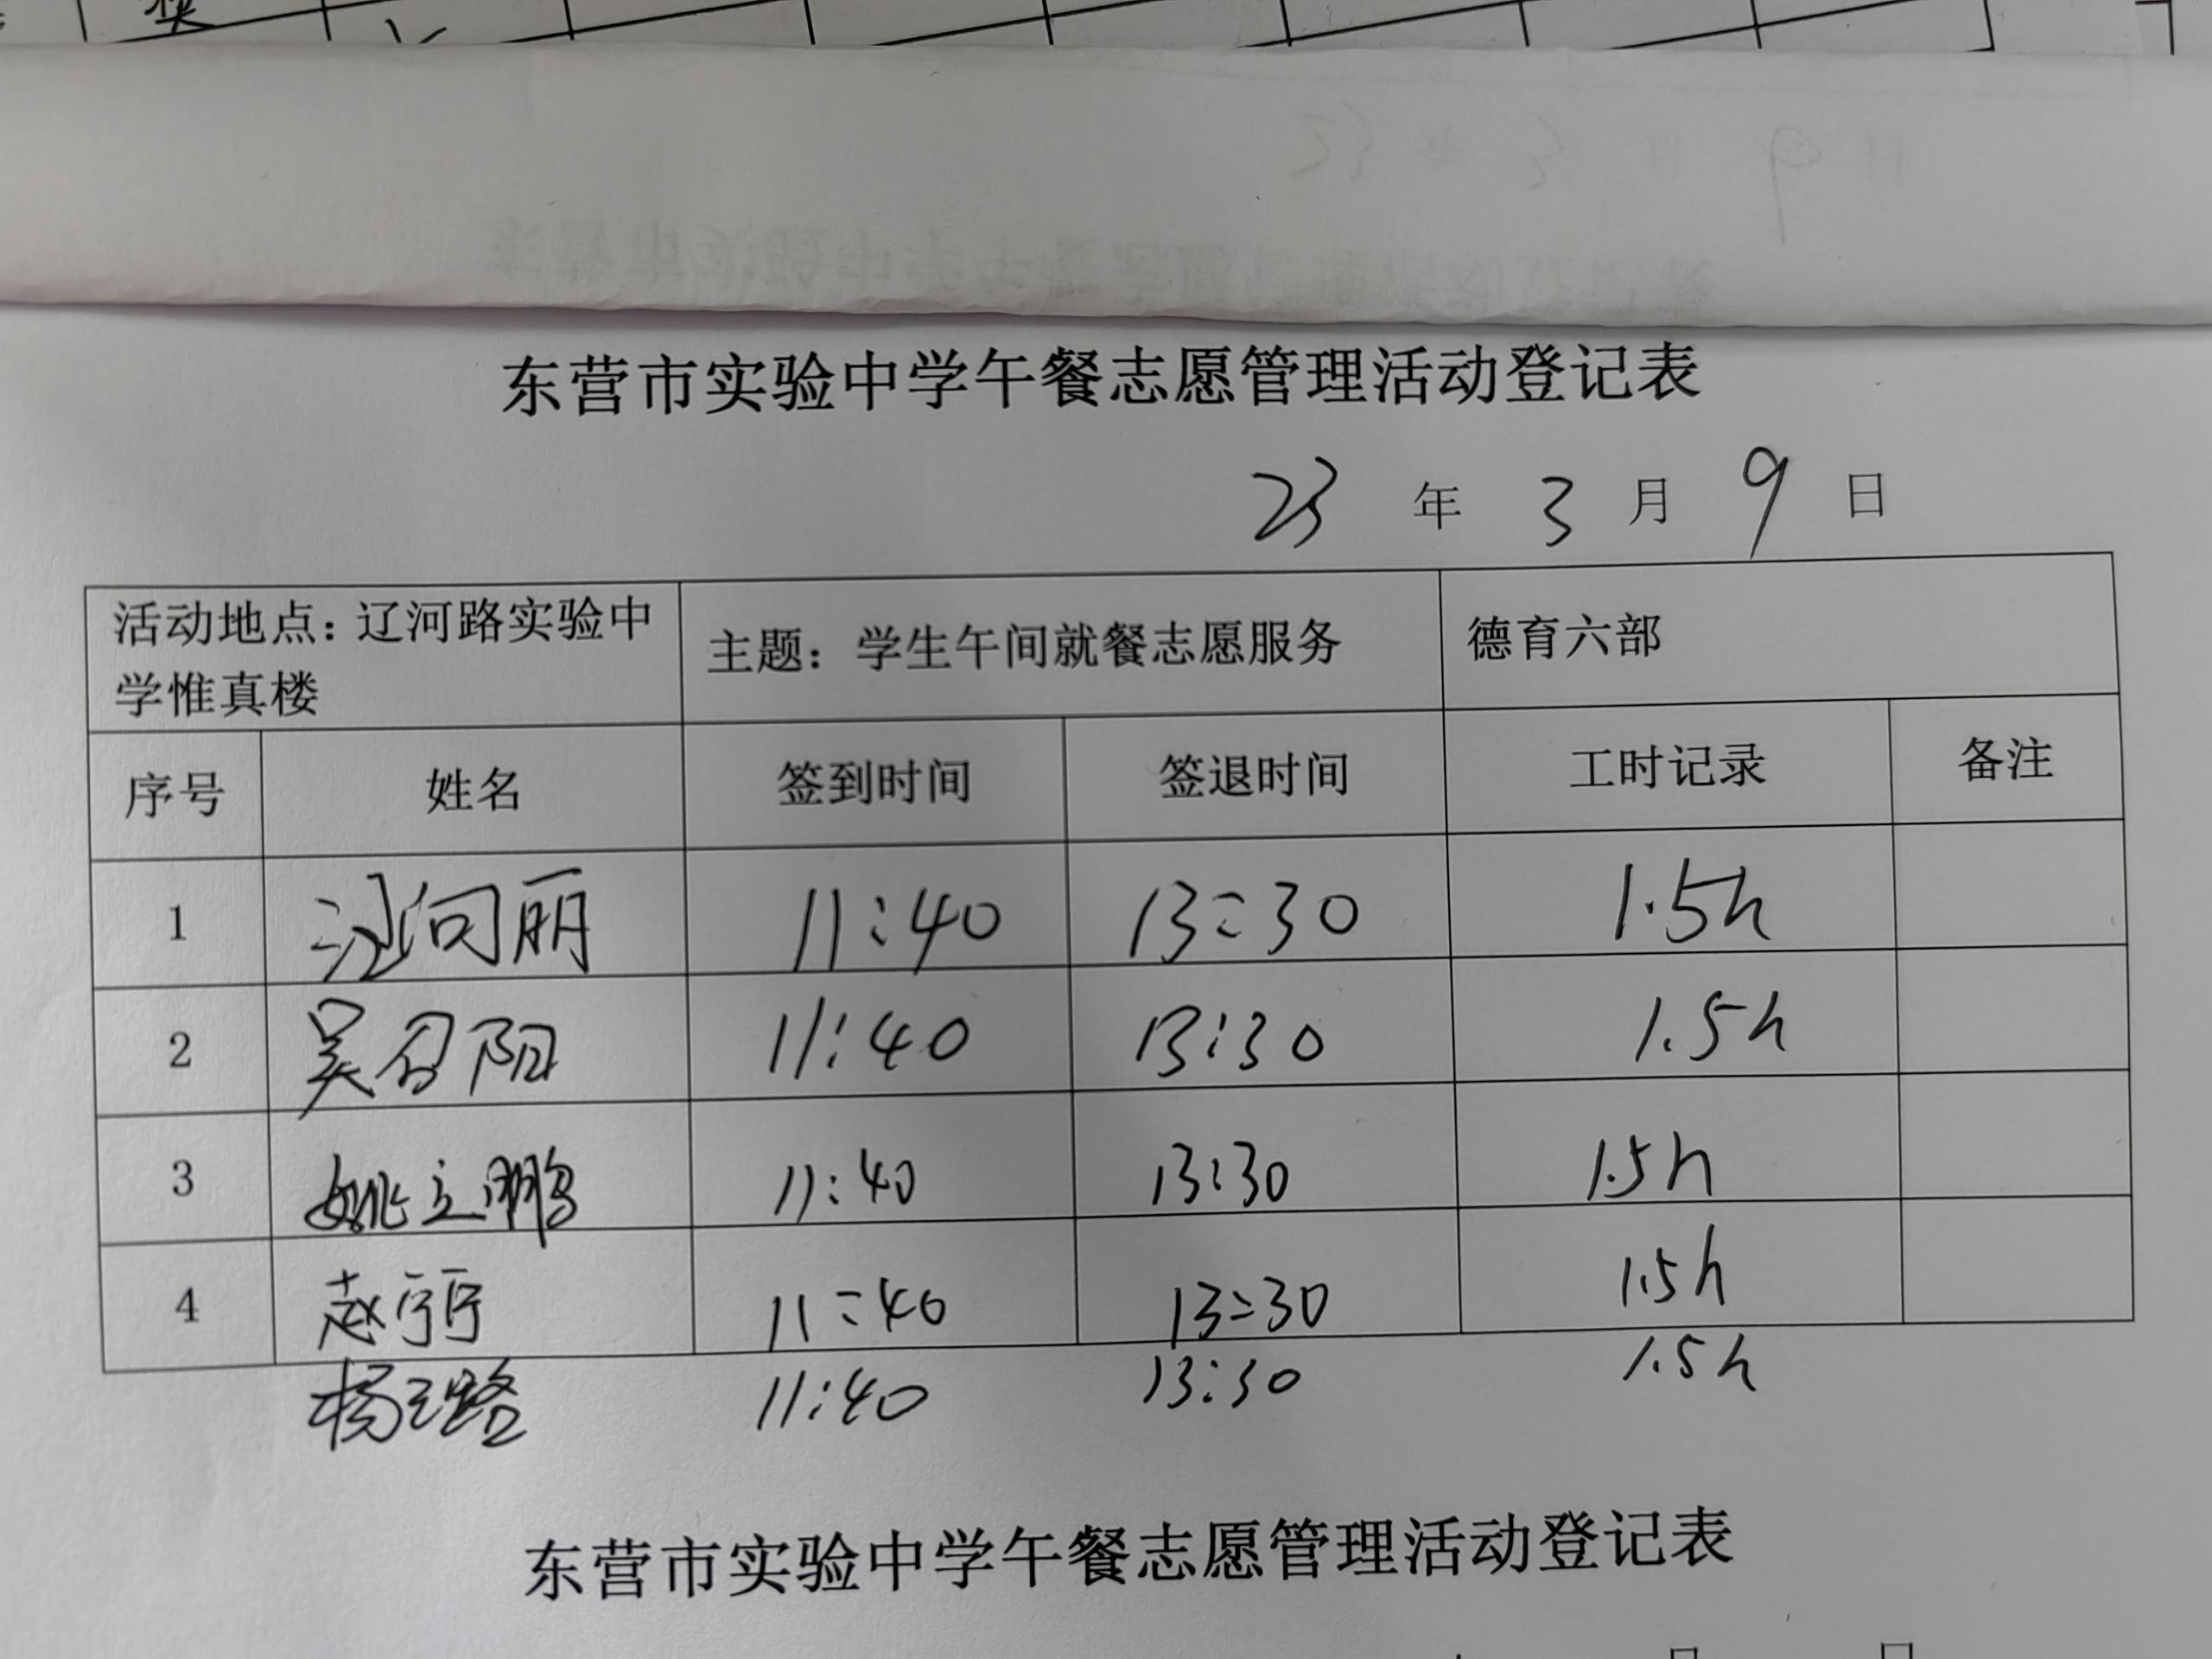 东营市实验中学午餐志愿管理活动登记表
23 年 3 月 9 日
活动地点：辽河路实验中学惟真楼 主题：学生午间就餐志愿服务 德育六部
序号 姓名 签到时间 签退时间 工时记录 备注
1 向丽 11:40 13:30 1.5h
2 吴召阳 11:40 13:30 1.5h
3 姚立鹏 11:40 13:30 1.5h
4 赵宁宁 11:40 13:30 1.5h
杨路 11:40 13:30 1.5h
东营市实验中学午餐志愿管理活动登记表